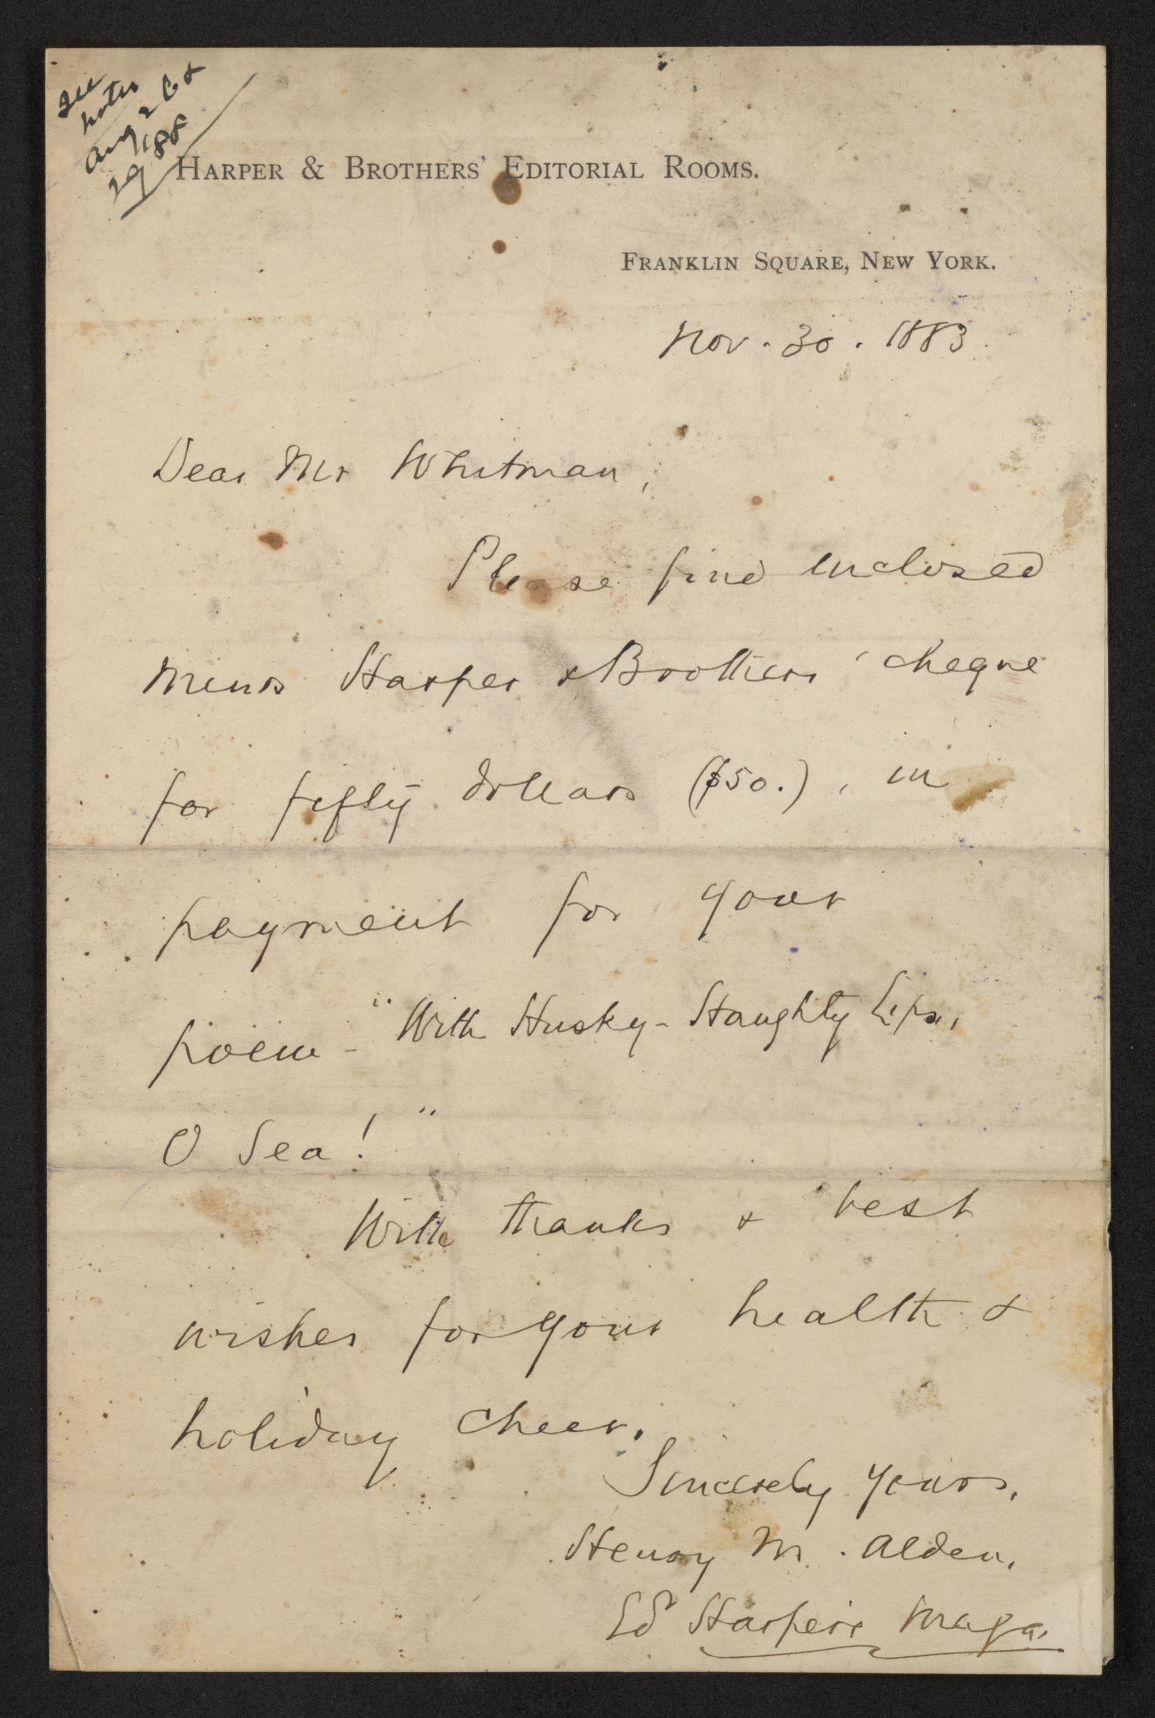 see
notes
Aug 26 &
29 '88
HARPER & BROTHERS' EDITORIAL ROOMS.
FRANKLIN SQUARE, NEW YORK.
Nov. 30. 1883.
Dear Mr Whitman,
Please find inclosed
Messrs Harper & Brothers' cheque
for fifty dollars ($50.), in
payment for your
poem - "With Husky-Haughty Lips,
O Sea!"
With thanks & best
wishes for your health &
holiday cheer.
Sincerely Yours,
Henry M. Alden.
Ed Harper's Maga.